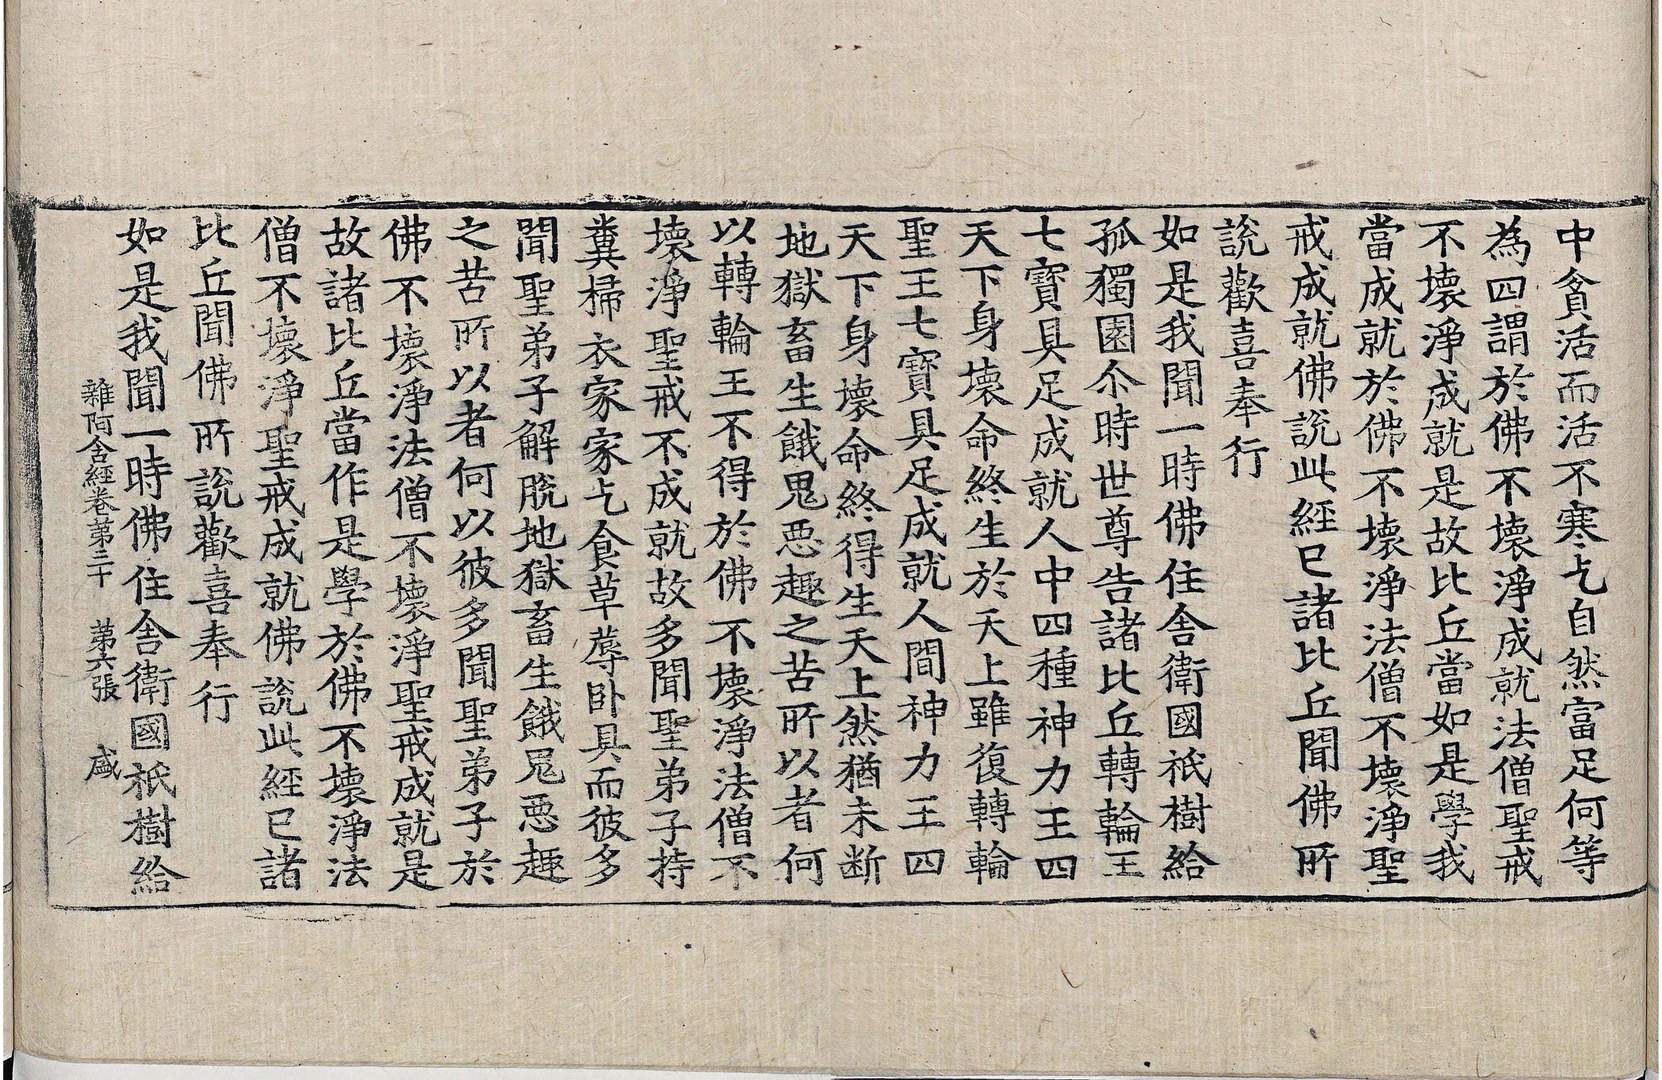 中貧活而活不寒乞自然富足何等
為四謂於佛不壞淨成就法僧聖戒
不壞淨成就是故比丘當如是學我
當成就於佛不壞淨法僧不壞淨聖
戒成就佛說此經已諸比丘聞佛所
說歡喜奉行
如是我聞一時佛住舍衛國祇樹給
孤獨園尒時世尊告諸比丘轉輪王
七寶具足成就人中四種神力王四
天下身壞命終生於天上雖復轉輪
聖王七寶具足成就人間神力王四
天下身壞命終得生天上然猶未断
地獄畜生餓鬼惡趣之苦所以者何
以轉輪王不得於佛不壞淨法僧不
壞淨聖戒不成就故多聞聖弟子持
糞掃衣家家乞食草蓐卧具而彼多
聞聖弟子解脫地獄畜生餓鬼惡趣
之苦所以者何以彼多聞聖弟子於
佛不壞淨法僧不壞淨聖戒成就是
故諸比丘當作是學於佛不壞淨法
僧不壞淨聖戒成就佛說此經已諸
比丘聞佛所說歡喜奉行
如是我聞一時佛住舍衛國祇樹給
雜阿含經卷第三十 第六張 盛